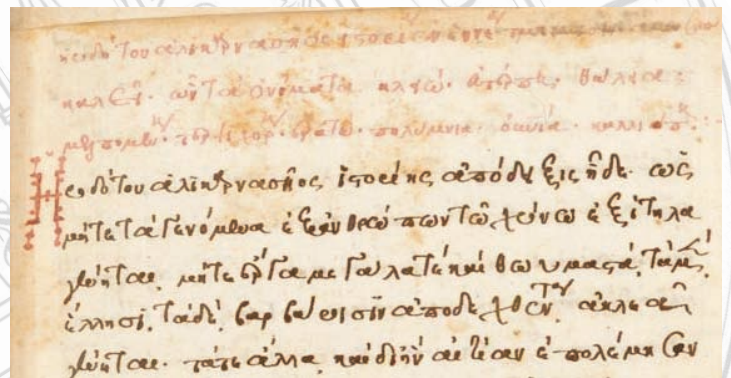 ἡροδότου ἁλικαρνασῆος
καλεῖ. ὧν τὰ ὀνόματα κλειώ. εὐτέρπη. θάλεια:
μελπομένη. τερψιχόρη. ἐρατώ. πολύμνια. οὐρανία. καλλιόπη:
Ἡροδότου ἁλικαρνασῆος ἱστορίης ἀπόδειξις ἥδε. ὡς
μήτε τὰ γενόμενα ἐξ ἀνθρώπων τῶ χρόνω ἐξίτηλα
γένηται. μήτε ἔργα μεγάλα τὲ καὶ θωυμαστά, τὰ μὲν,
ἕλλησι, τὰ δὲ, βαρβάροισιν ἀποδεχθέντα, ἀκλεᾶ
γένηται. τά τε ἄλλα καὶ δι' ἣν αἰτίαν ἐπολέμησαν